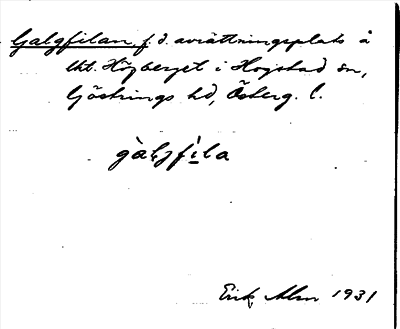 Galgfilan, f. d. avrättningsplats å
utl. Högberget i Hogstad sn,
Göstrings hd, Österg. l.
gàlgfila
Erik Alm 1931